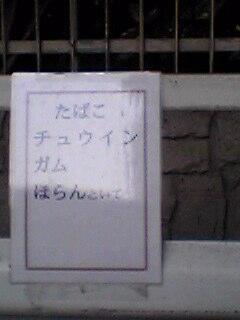 たばこ
チュウイン
ガム
ほらんといて